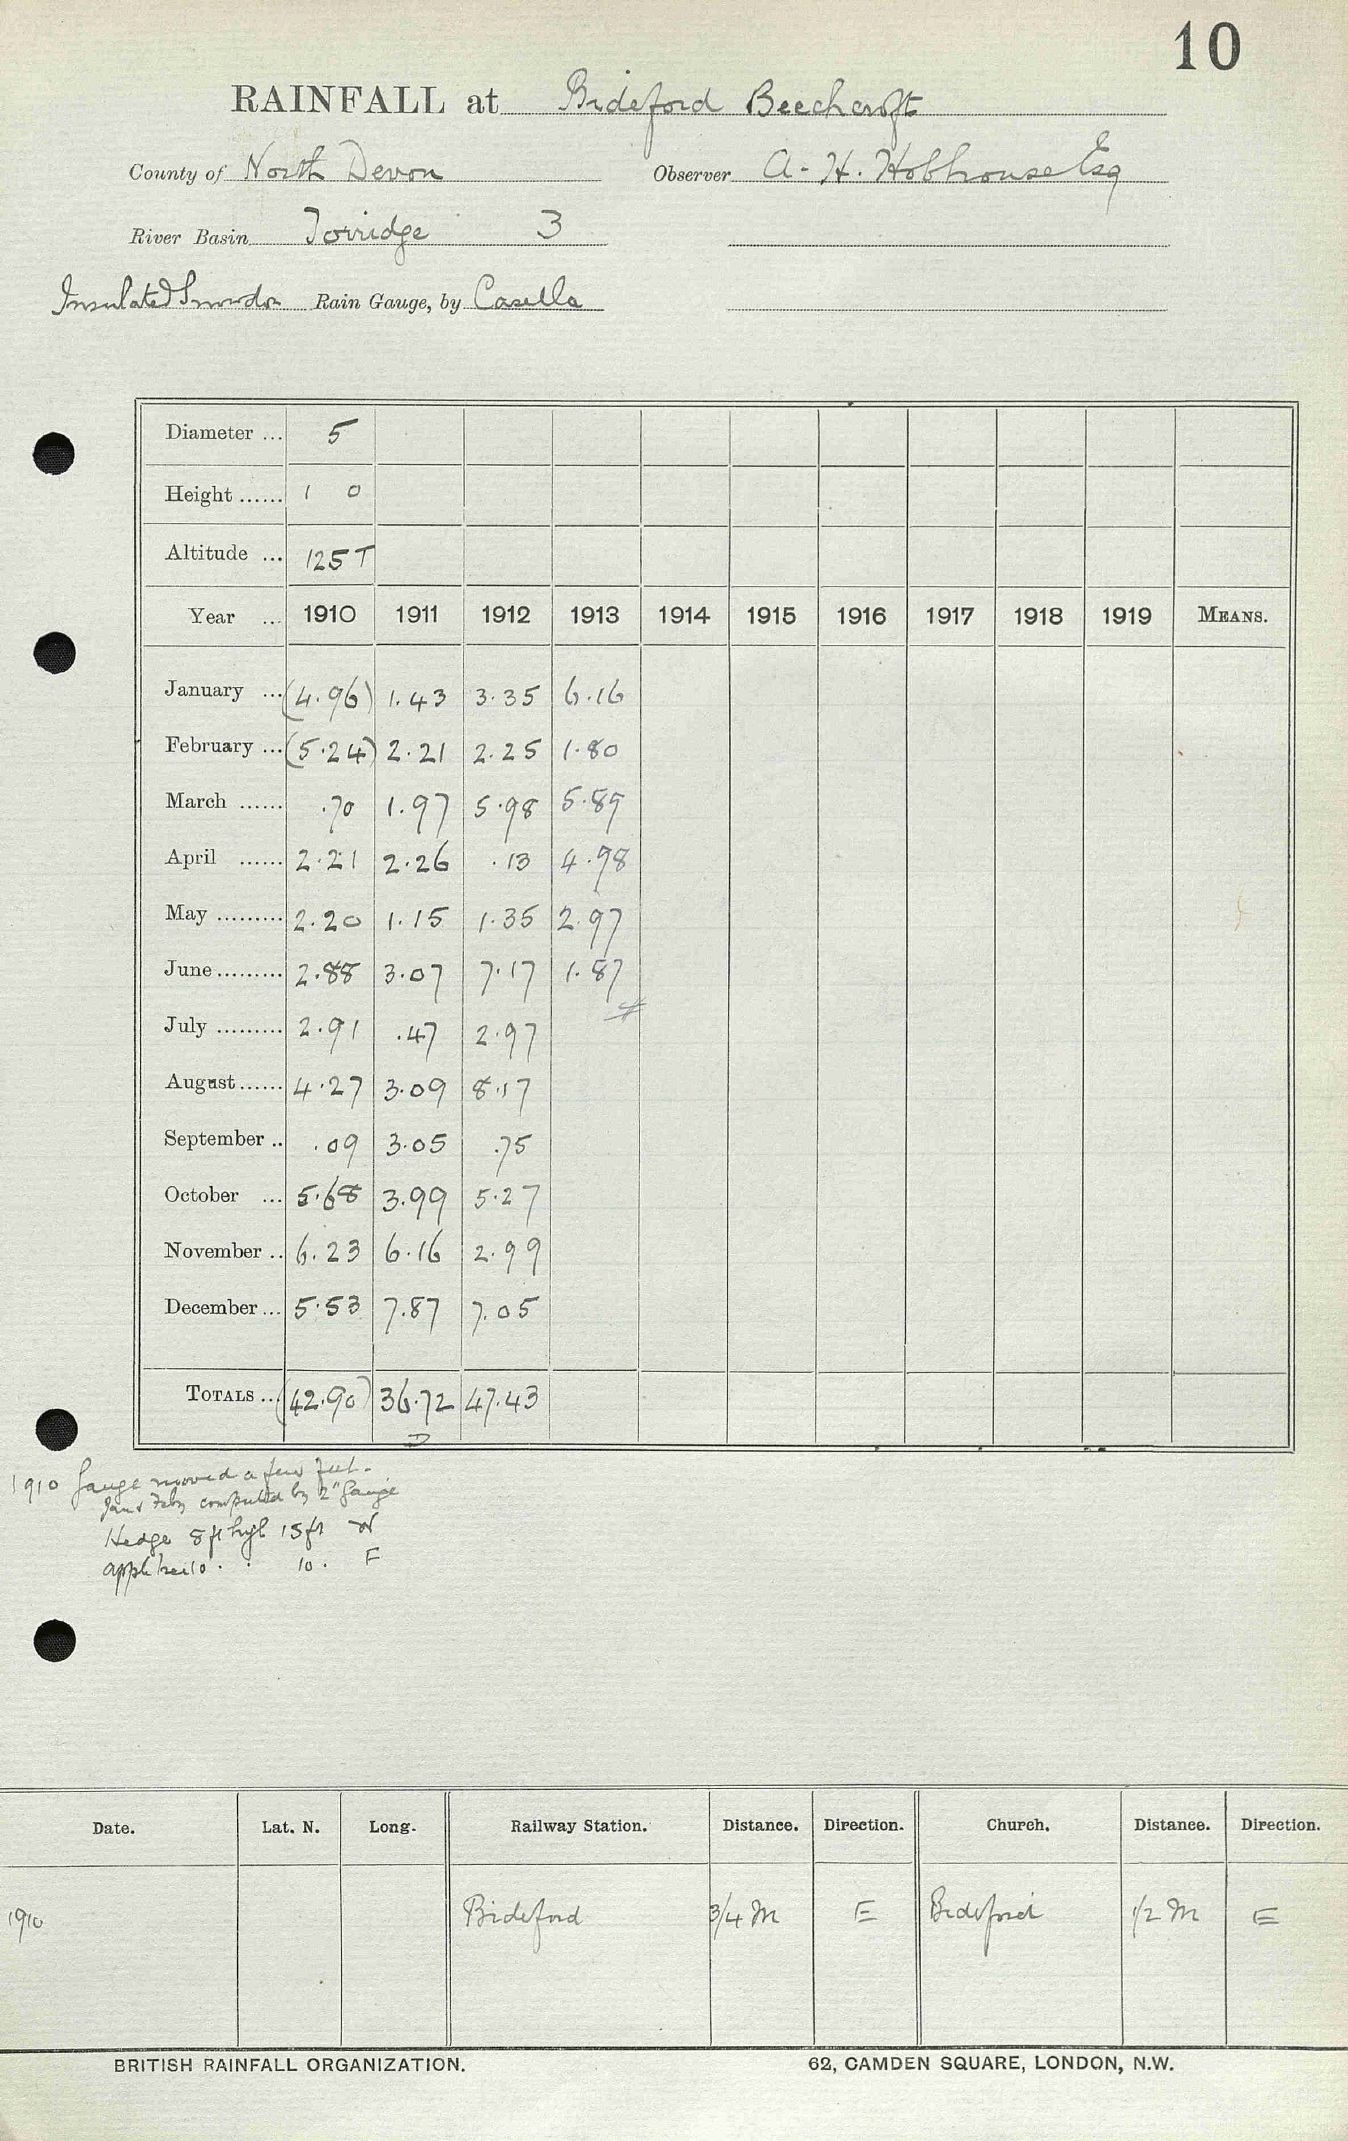 10
RAINFALL at Bideford Beechcroft
County of North Devon Observer A. H. Hobhouse Esq
River Basin Torridge 3
Insulated Snowdon Rain Gauge, by Casella
Diameter ... 5
Height ...... 1 0
Altitude ... 125 T
Year ... 1910 1911 1912 1913 1914 1915 1916 1917 1918 1919 MEANS.
January ... (4.96) 1.43 3.35 6.16
February ... (5.24) 2.21 2.25 1.80
March ...... .70 1.97 5.98 5.89
April ...... 2.21 2.26 .13 4.98
May ......... 2.20 1.15 1.35 2.97
June ......... 2.88 3.07 7.17 1.87
July ......... 2.91 .47 2.97
August ...... 4.27 3.09 8.17
September .. .09 3.05 .75
October ... 5.68 3.99 5.27
November .. 6.23 6.16 2.99
December ... 5.53 7.87 7.05
TOTALS ... (42.90) 36.72 47.43
1910 Gauge moved a few feet.
Jan & Feby computed by 2" Gauge
Hedge 8 ft high 15 ft W
apple tree 10 . . 10 . E
Date. Lat. N. Long. Railway Station. Distance. Direction. Church. Distance. Direction.
1910 Bideford 3/4 M E Bideford 1/2 M E
BRITISH RAINFALL ORGANIZATION. 62, CAMDEN SQUARE, LONDON, N.W.